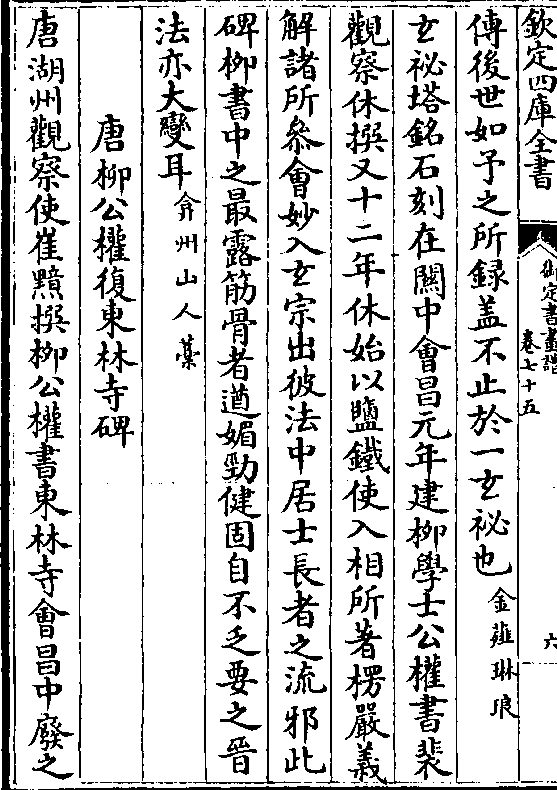 欽定四庫全書
御定書畫譜
卷七十五
六
傳後世如予之所録盖不止於一玄祕也金薤琳琅
玄祕塔銘石刻在關中會昌元年建柳學士公權書裴
觀察休撰又十二年休始以鹽鐵使入相所著楞嚴義
解諸所叅會妙入玄宗出彼法中居士長者之流邪此
碑柳書中之最露筋骨者遒媚勁健固自不乏要之晉
法亦大變耳弇州山人藁
唐柳公權復東林寺碑
唐湖州觀察使崔黯撰柳公權書東林寺會昌中廢之